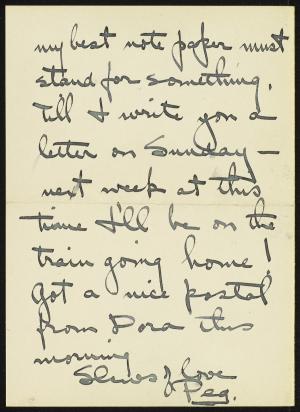 my best note paper must
stand for something.
Till I write you a
letter on Sunday —
next week at this
time I'll be on the
train going home!
Got a nice postal
from Dora this
morning
Slews of love
Peg.